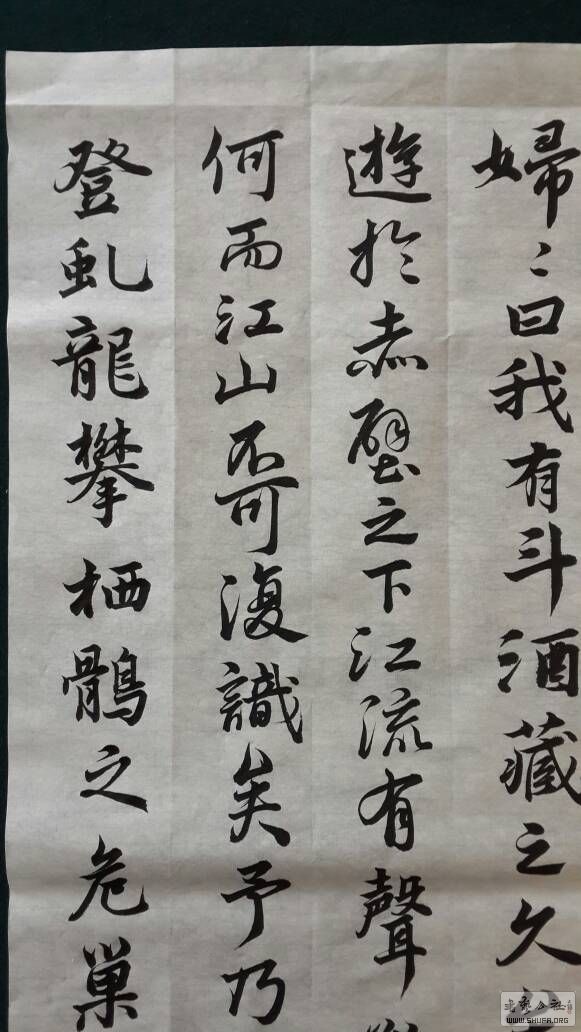 婦〻曰我有斗酒藏之久
遊於赤壁之下江流有聲
何而江山不可復識矣予乃
登虬龍攀栖鶻之危巢
WWW.SHUFA.ORG